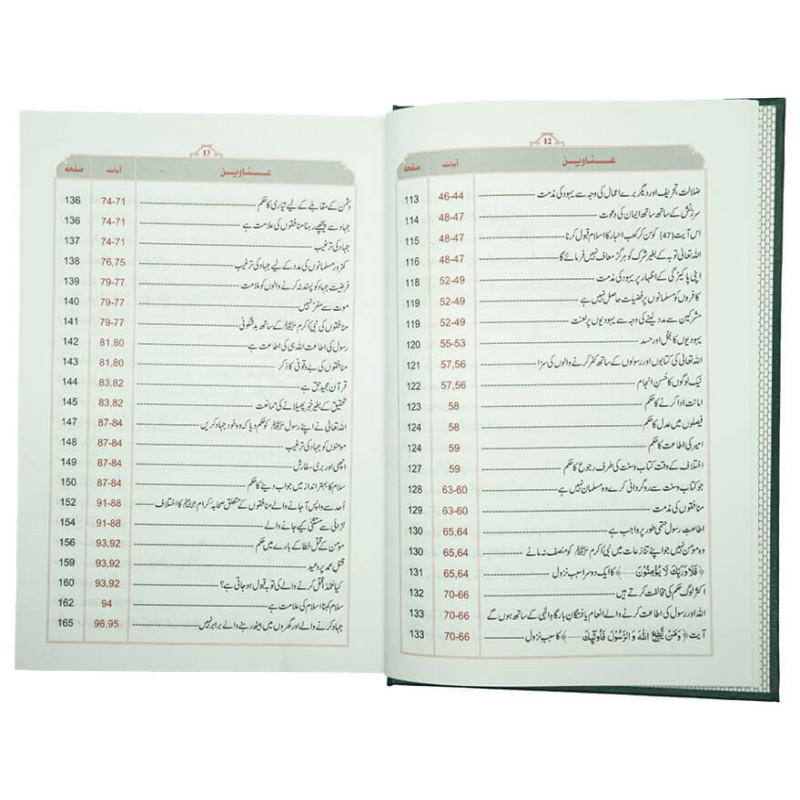 12
عناوین آیات صفحہ
ضلالت تحریف اور دیگر برے اعمال کی وجہ سے یہود کی مذمت 46-44 113
سرزنش کے ساتھ ساتھ ایمان کی دعوت 48-47 114
اس آیت (47) کو سن کر کعب احبار کا اسلام قبول کرنا 48-47 115
اللہ تعالیٰ توبہ کے بغیر شرک کو ہرگز معاف نہیں فرمائے گا 48-47 116
اپنی پاکیزگی کے اظہار پر یہود کی مذمت 52-49 118
کافروں کو مسلمانوں پر فضیلت حاصل نہیں ہے 52-49 119
مشرکین سے مدد لینے کی وجہ سے یہودیوں پر لعنت 52-49 119
یہودیوں کا بخل اور حسد 55-53 120
اللہ تعالیٰ کی کتابوں اور رسولوں کے ساتھ کفر کرنے والوں کی سزا 57,56 121
نیک لوگوں کا حُسنِ انجام 57,56 122
امانت ادا کرنے کا حکم 58 123
فیصلوں میں عدل کا حکم 58 124
امیر کی اطاعت کا حکم 59 124
اختلاف کے وقت کتاب و سنت کی طرف رجوع کا حکم 59 127
جو کتاب و سنت سے روگردانی کرے وہ مسلمان نہیں ہے 63-60 128
منافقوں کی مذمت 63-60 129
اطاعتِ رسول حتمی طور پر واجب ہے 65,64 130
وہ مومن نہیں جو اپنے تنازعات میں نبی اکرم ﷺ کو منصف نہ مانے 65,64 130
﴿فَلَا وَرَبِّكَ لَا يُؤْمِنُونَ ----﴾ کا ایک دوسرا سبب نزول 65,64 131
اکثر لوگ حکم کی مخالفت کرتے ہیں 70-66 132
اللہ اور رسول کی اطاعت کرنے والے انعام یافتگان بارگاہِ الٰہی کے ساتھ ہوں گے 70-66 133
آیت ﴿وَمَنْ يُّطِعِ اللهَ وَالرَّسُوْلَ فَاُولٰٓئِكَ ----﴾ کا سبب نزول 70-66 133
13
عناوین آیات صفحہ
دشمن کے مقابلے کے لیے تیاری کا حکم 74-71 136
جہاد سے پیچھے رہنا منافقوں کی علامت ہے 74-71 136
جہاد کی ترغیب 74-71 137
کمزور مسلمانوں کی مدد کے لیے جہاد کی ترغیب 76,75 138
فرضیت جہاد کو پسند نہ کرنے والوں کو ملامت 79-77 139
موت سے مفر نہیں 79-77 140
منافقوں کی نبی اکرم ﷺ کے ساتھ بدشگونی 79-77 141
رسول کی اطاعت اللہ ہی کی اطاعت ہے 81,80 142
منافقوں کی بے وقوفی کا ذکر 81,80 143
قرآن مجید حق ہے 83,82 144
تحقیق کے بغیر خبر پھیلانے کی ممانعت 83,82 145
اللہ تعالیٰ نے اپنے رسول ﷺ کو حکم دیا کہ وہ خود جہاد کریں 87-84 147
مومنوں کو جہاد کی ترغیب 87-84 148
اچھی اور بری سفارش 87-84 149
سلام کا بہتر انداز میں جواب دینے کا حکم 87-84 150
اُحد سے واپس آ جانے والے منافقوں کے متعلق صحابہ کرام کا اختلاف 91-88 152
لڑائی سے مستثنیٰ کیے جانے والے 91-88 154
مومن کے قتل خطا کے بارے میں حکم 93,92 156
قتل عمد پر وعید 93,92 159
کیا عمداً قتل کرنے والے کی توبہ قبول ہو جاتی ہے؟ 93,92 160
سلام کہنا اسلام کی علامت ہے 94 162
جہاد کرنے والے اور گھروں میں بیٹھ رہنے والے برابر نہیں 96,95 165